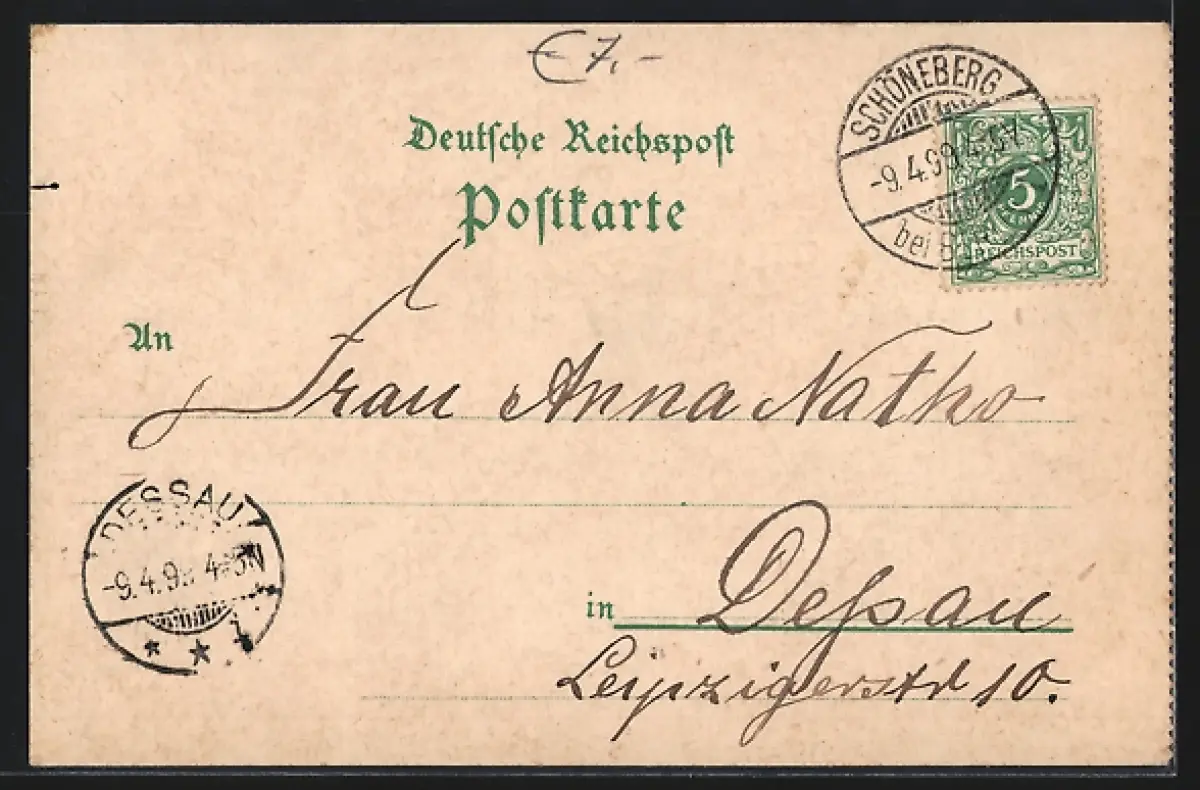 €7,-
Deutsche Reichspost
Postkarte
SCHÖNEBERG
-9.4.99.
bei
5
REICHSPOST
An
Frau Anna Natho
DESSAU
-9.4.9
in Dessau
Leipzigerstr 10.